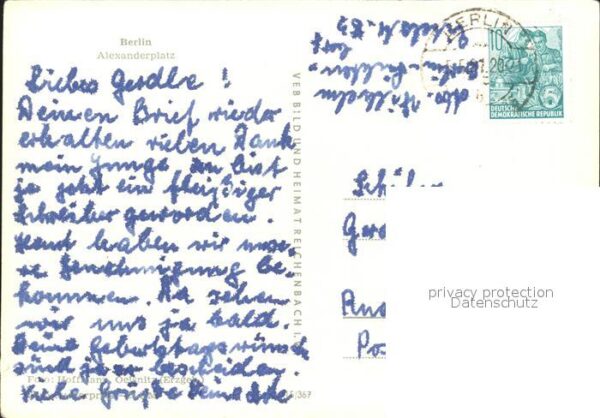 Berlin
Alexanderplatz
Liebes Gerdle!
Deinen Brief wieder
erhalten vielen Dank
mein Junge du bist
ja jetzt ein fleißiger
Schreiber geworden.
Heut haben wir unse-
re Genehmigung be-
kommen. Na sehen
wir uns ja bald.
Deine Geburtstagswünsch
sind ja bescheiden.
Viele Grüße Deine
Foto: Hoffmann, Oelsnitz (Erzgeb.)
VEB BILD UND HEIMAT REICHENBACH I.
Abs. Wilhelm
Berlin
BERLIN
10
DEUTSCHE
DEMOKRATISCHE REPUBLIK
Schül
Ger
privacy protection
Datenschutz
Po